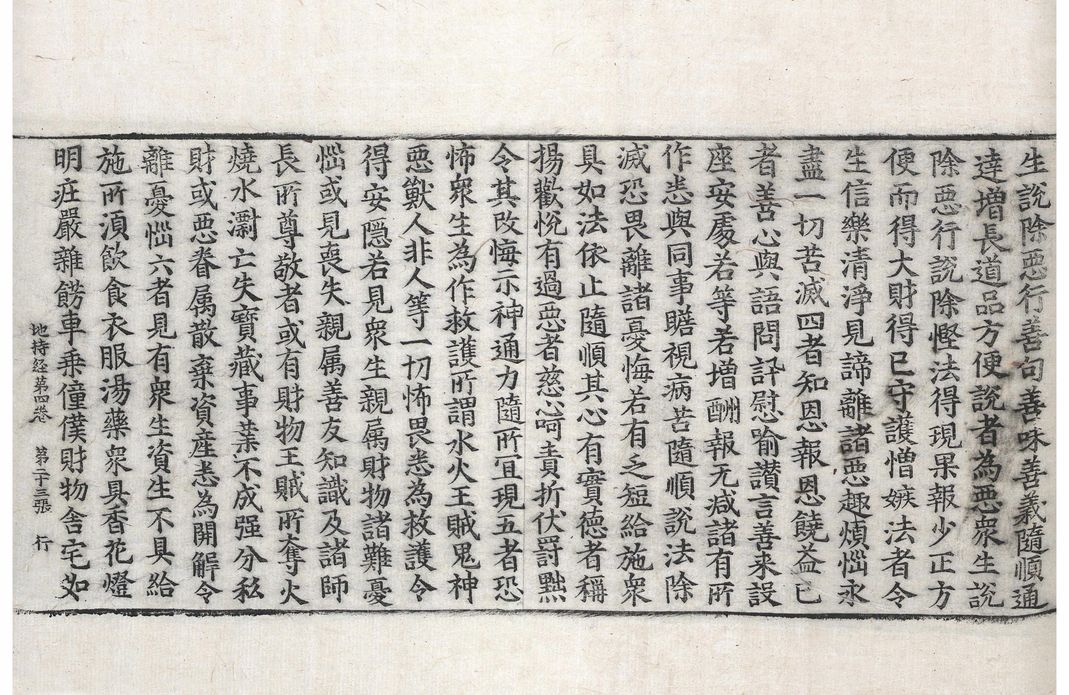 生說除惡行善句善味善義隨順通
達增長道品方便說者為惡衆生說
除惡行說除慳法得現果報少正方
便而得大財得已守護憎嫉法者令
生信樂清淨見諦離諸惡趣煩惱永
盡一切苦滅四者知恩報恩饒益已
者善心與語問訊慰喻讃言善来設
座安處若等若增酬報无減諸有所
作悉與同事瞻視病苦隨順說法除
滅恐畏離諸憂悔若有乏短給施衆
具如法依止隨順其心有實德者稱
揚歡悅有過惡者慈心呵責折伏罰黜
令其改悔示神通力隨所宜現五者恐
怖衆生為作救護所謂水火王賊鬼神
惡獸人非人等一切怖畏悉為救護令
得安隱若見衆生親属財物諸難憂
惱或見喪失親属善友知識及諸師
長所尊敬者或有財物王賊所奪火
燒水㶑亡失寶藏事業不成强分私
財或惡眷属散棄資産悉為開解令
離憂惱六者見有衆生資生不具給
施所湏飲食衣服湯藥衆具香花燈
明莊嚴雜餝車乗僮僕財物舍宅如
地持経第四卷　第二十三張　行